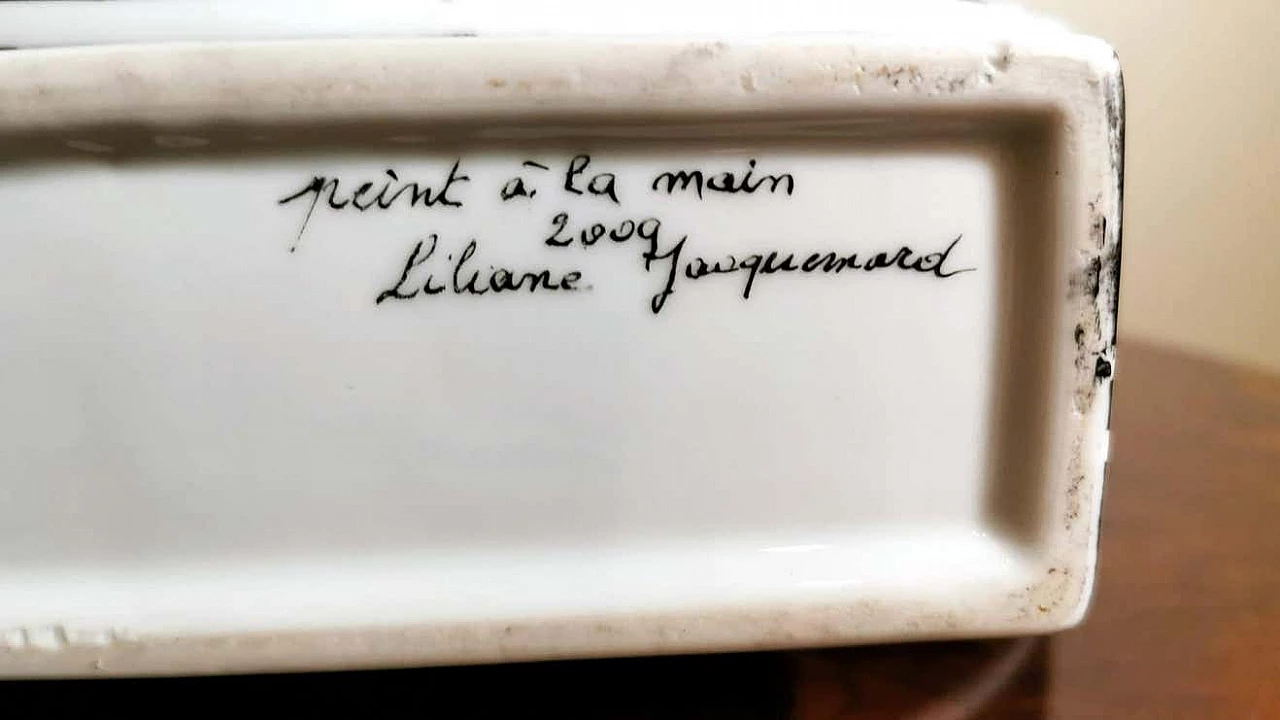 peint à la main
2009
Liliane Jacquemard